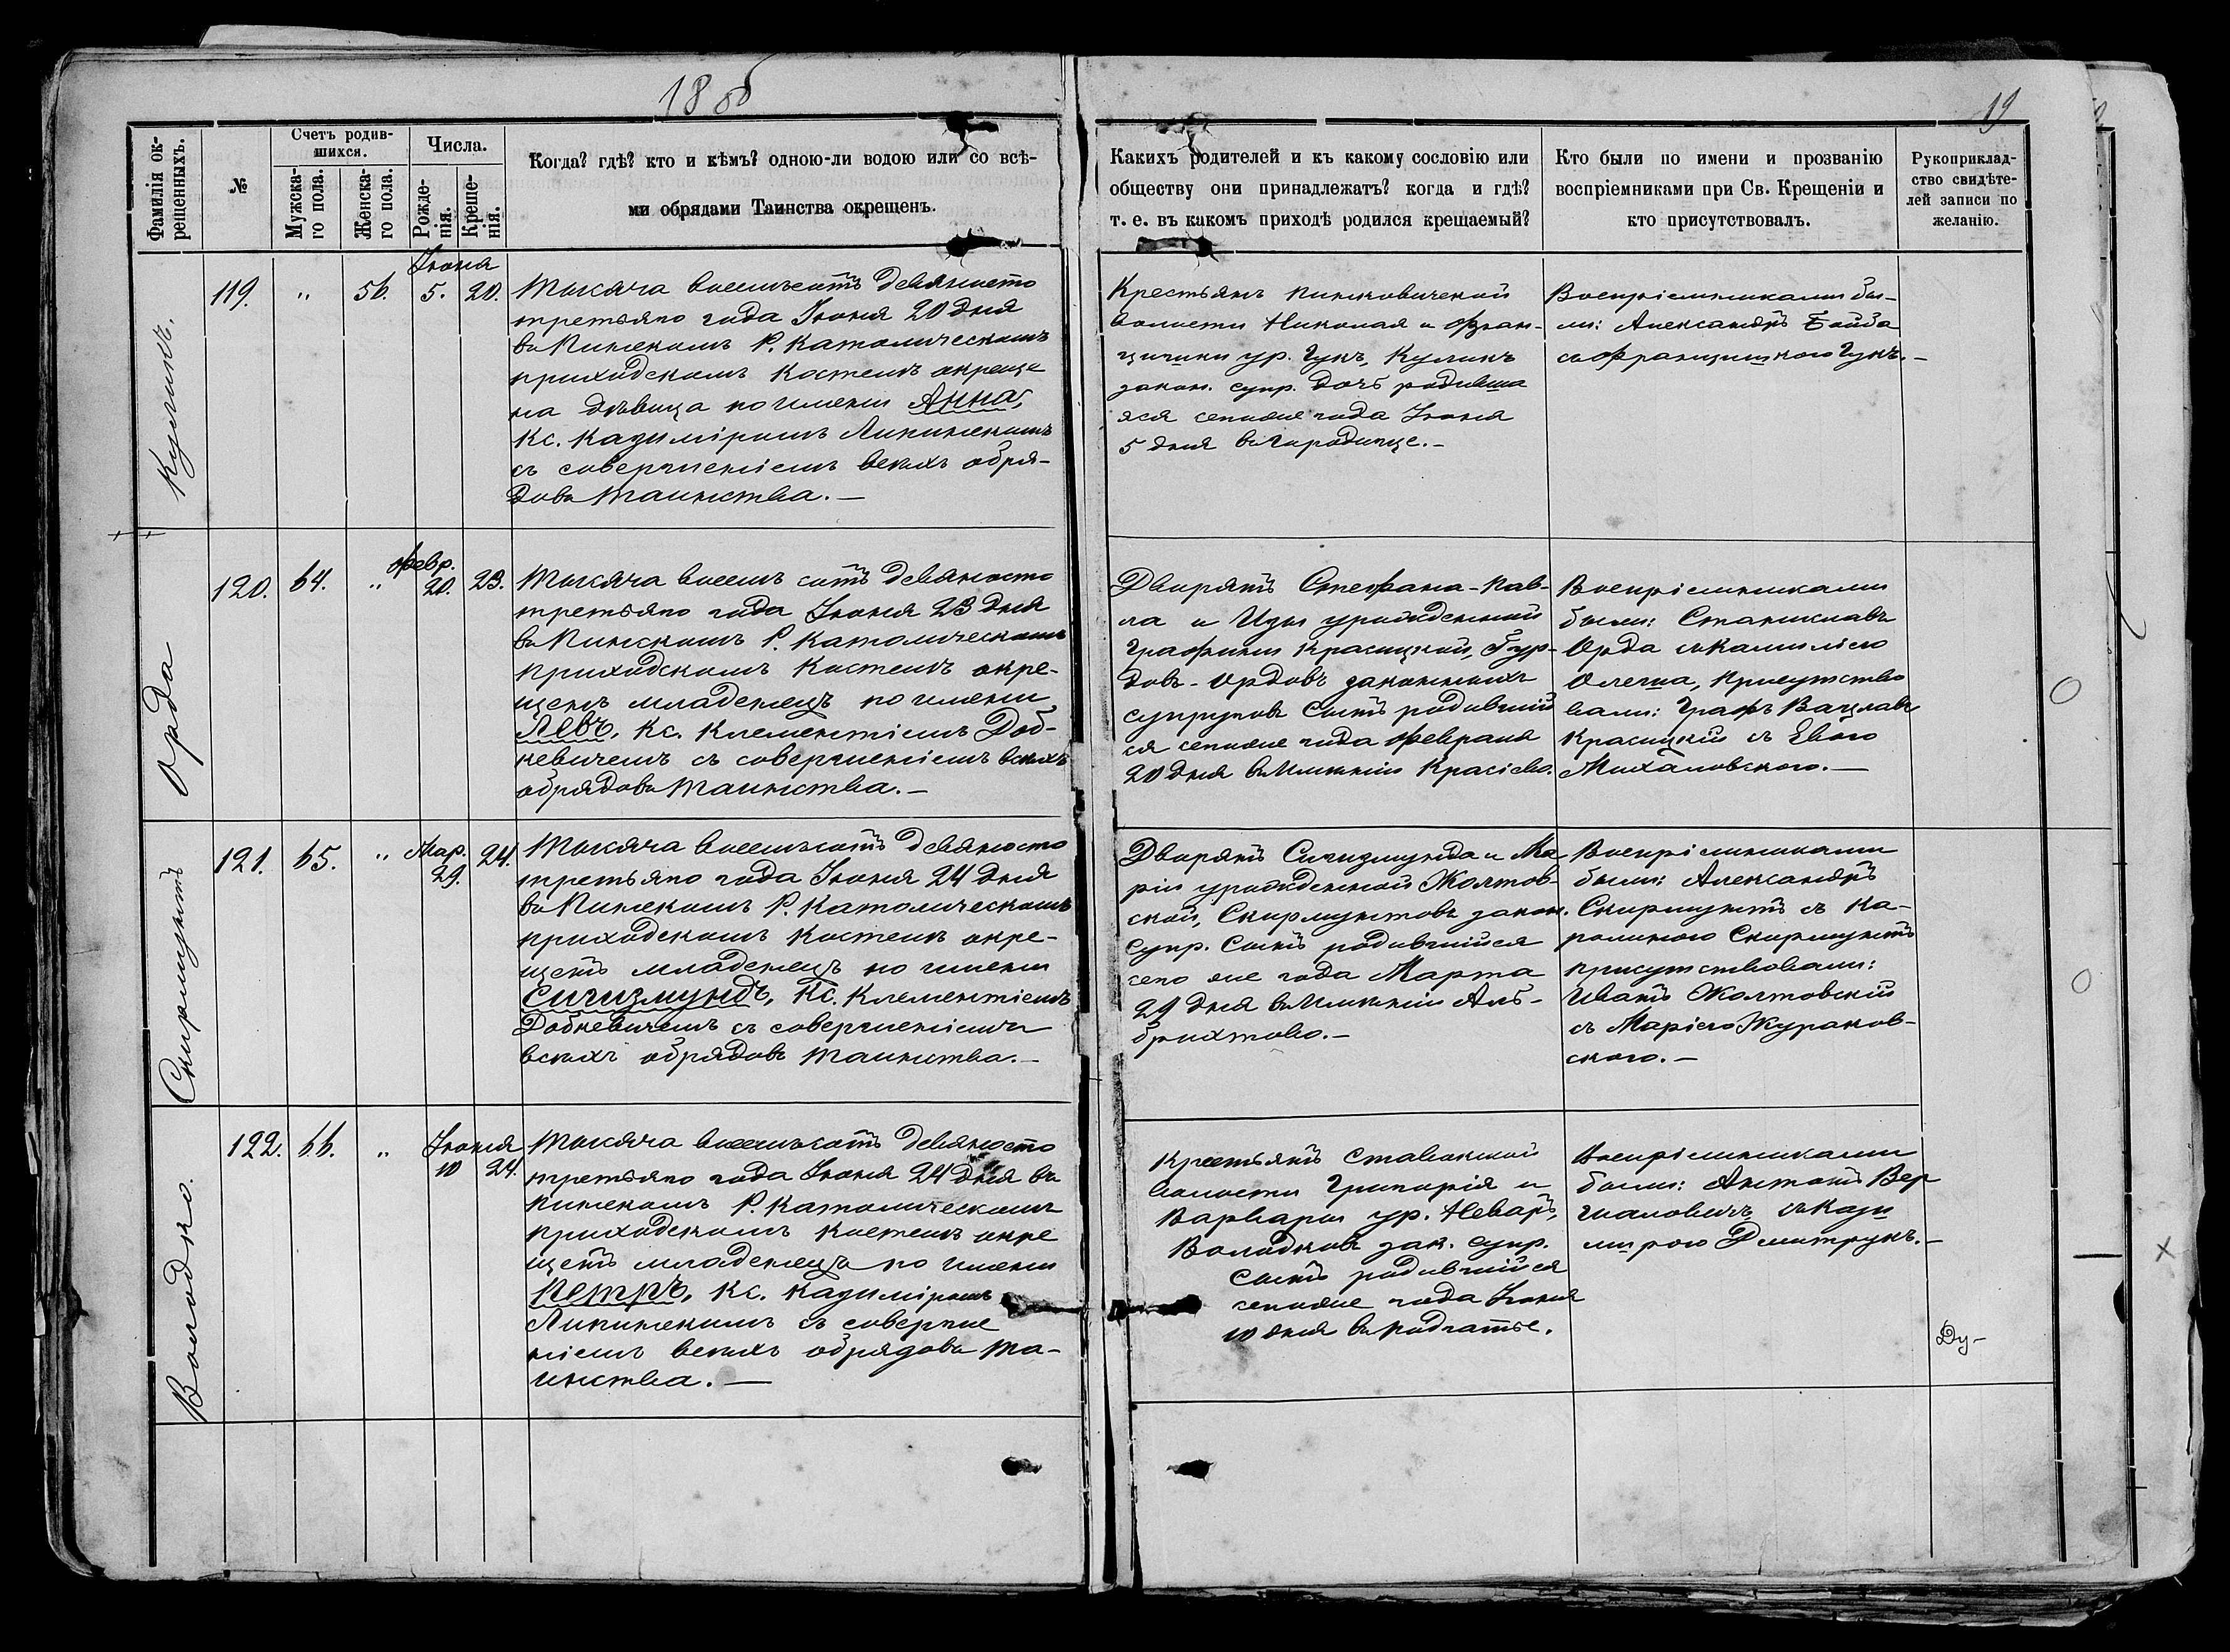 19
Фамилія ок-
рещенныхъ.
№
Счетъ родив-
шихся.
Мужска-
го пола.
Женска-
го пола.
Числа.
Рожде-
нія.
Креще-
нія.
Когда? гдѣ? кто и кѣмъ? одною-ли водою или со всѣ-
ми обрядами Таинства окрещенъ.
Какихъ родителей и къ какому сословію или
обществу они принадлежатъ? когда и гдѣ?
т. е. въ какомъ приходѣ родился крещаемый?
Кто были по имени и прозванію
воспріемниками при Св. Крещеніи и
кто присутствовалъ.
Рукоприклад-
ство свидѣте-
лей записи по
желанію.
Куликъ.
119. " 56. Іюня 5. 20.
Тысяча восемьсотъ девяносто
третьяго года Іюня 20 дня
въ Пинскомъ Р. Католическомъ
приходскомъ костелѣ окреще
на дѣвица по имени Анна,
Кс. Казиміромъ Липинскимъ
съ совершеніемъ всѣхъ обря-
довъ таинства.—
Крестьянъ Пинковичской
волости Николая и Фран-
цишки ур. Гукъ, Куликъ
закон. супр. дочь родивша
яся сего же года Іюня
5 дня въ Городище.—
Воспріемниками бы-
ли: Александръ Бойда
съ Францишкою Гукъ.—
Орда
120. 64. " Февр. 20. 23.
Тысяча восемь сотъ девяносто
третьяго года Іюня 23 дня
въ Пинскомъ Р. Католическомъ
приходскомъ костелѣ окре-
щенъ младенецъ по имени
Левъ, Кс. Клементіемъ Доб-
кевичемъ съ совершеніемъ всѣхъ
обрядовъ таинства.—
Дворянъ Стефана-Пав-
ла и Изы урожденной
Графини Красицкой, Бур-
довъ-Ордовъ законныхъ
супруговъ сынъ родившій
ся сего же года Февраля
20 дня въ имѣніи Красіево.
Воспріемниками
были: Станиславъ
Орда съ Камиліею
Олеша, присутство
вали: Графъ Вацлавъ
Красицкій съ Евою
Михаловскою.—
Скирмунтъ
121. 65. " Мар. 29. 24.
Тысяча восемьсотъ девяносто
третьяго года Іюня 24 дня
въ Пинскомъ Р. Католическомъ
приходскомъ костелѣ окре-
щенъ младенецъ по имени
Сигизмундъ, Кс. Клементіемъ
Добкевичемъ съ совершеніемъ
всѣхъ обрядовъ таинства.—
Дворянъ Сигизмунда и Ма
ріи урожденной Жолтов-
ской, Скирмунтовъ закон.
супр. сынъ родившійся
сего же года Марта
29 дня въ имѣніи Аль-
брихтово.—
Воспріемниками
были: Александръ
Скирмунтъ съ Ка-
ролиною Скирмунтъ
присутствовали:
Иванъ Жолтовскій
съ Маріею Жураков-
скою.—
Володько.
122. 66. " Іюня 10 24.
Тысяча восемьсотъ девяносто
третьяго года Іюня 24 дня въ
Пинскомъ Р. Католическомъ
приходскомъ костелѣ окре
щенъ младенецъ по имени
Петръ, Кс. Казиміромъ
Липинскимъ съ соверше
ніемъ всѣхъ обрядовъ та-
инства.—
Крестьянъ Ставокской
волости Григорія и
Варвары ур. Неваръ,
Володковъ зак. супр.
сынъ родившійся
сего же года Іюня
10 дня въ Подгатье.
Воспріемниками
были: Антонъ Вер
шаловичъ съ Кази
мірою Дмитрукъ.—
Ду-